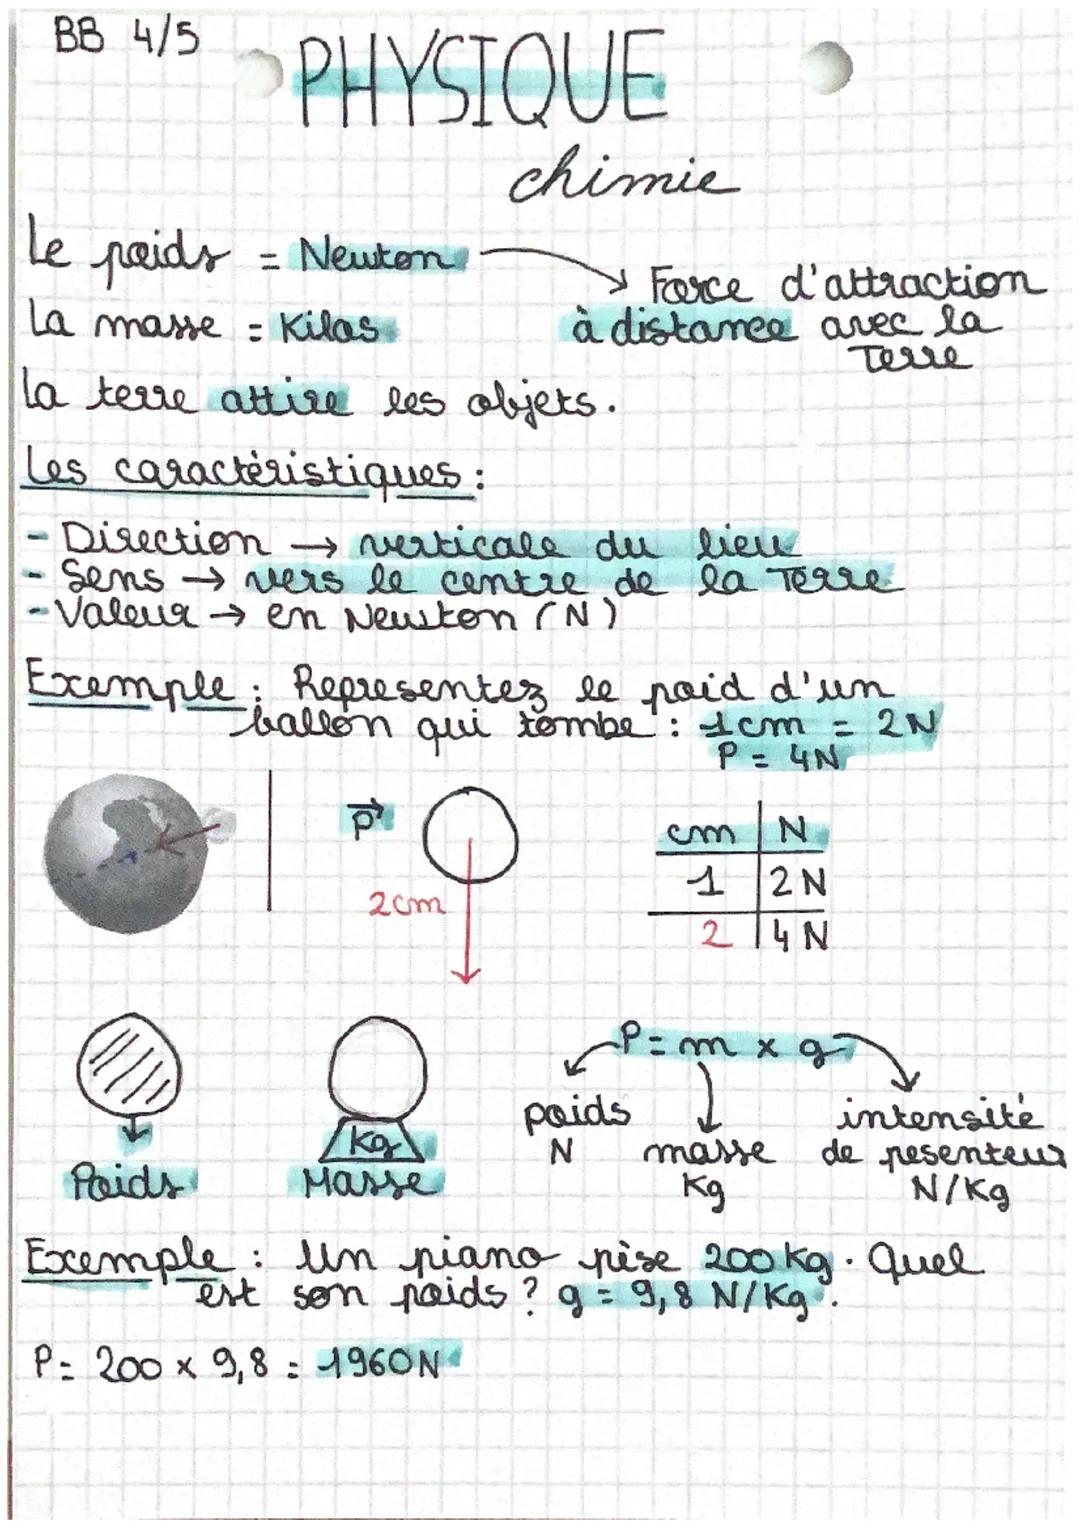 BB 4/5
PHYSIQUE
chimie
Le poids = Newton → Force d'attraction
La masse = Kilos à distance avec la
Terre
La terre attire les objets.
Les caractéristiques :
- Direction → verticale du lieu
- Sens → vers le centre de la Terre
- Valeur → en Newton (N)
Exemple : Representez le poid d'un
ballon qui tombe : 1cm = 2N
P = 4N
P
cm N
1 2N
2cm
2 4N
P = m x g
poids
N
masse
Kg
intensité
de pesenteur
N/Kg
Kg
Poids
Masse
Exemple : Un piano pèse 200 Kg. Quel
est son poids ? g = 9,8 N/Kg.
P = 200 x 9,8 = 1960N